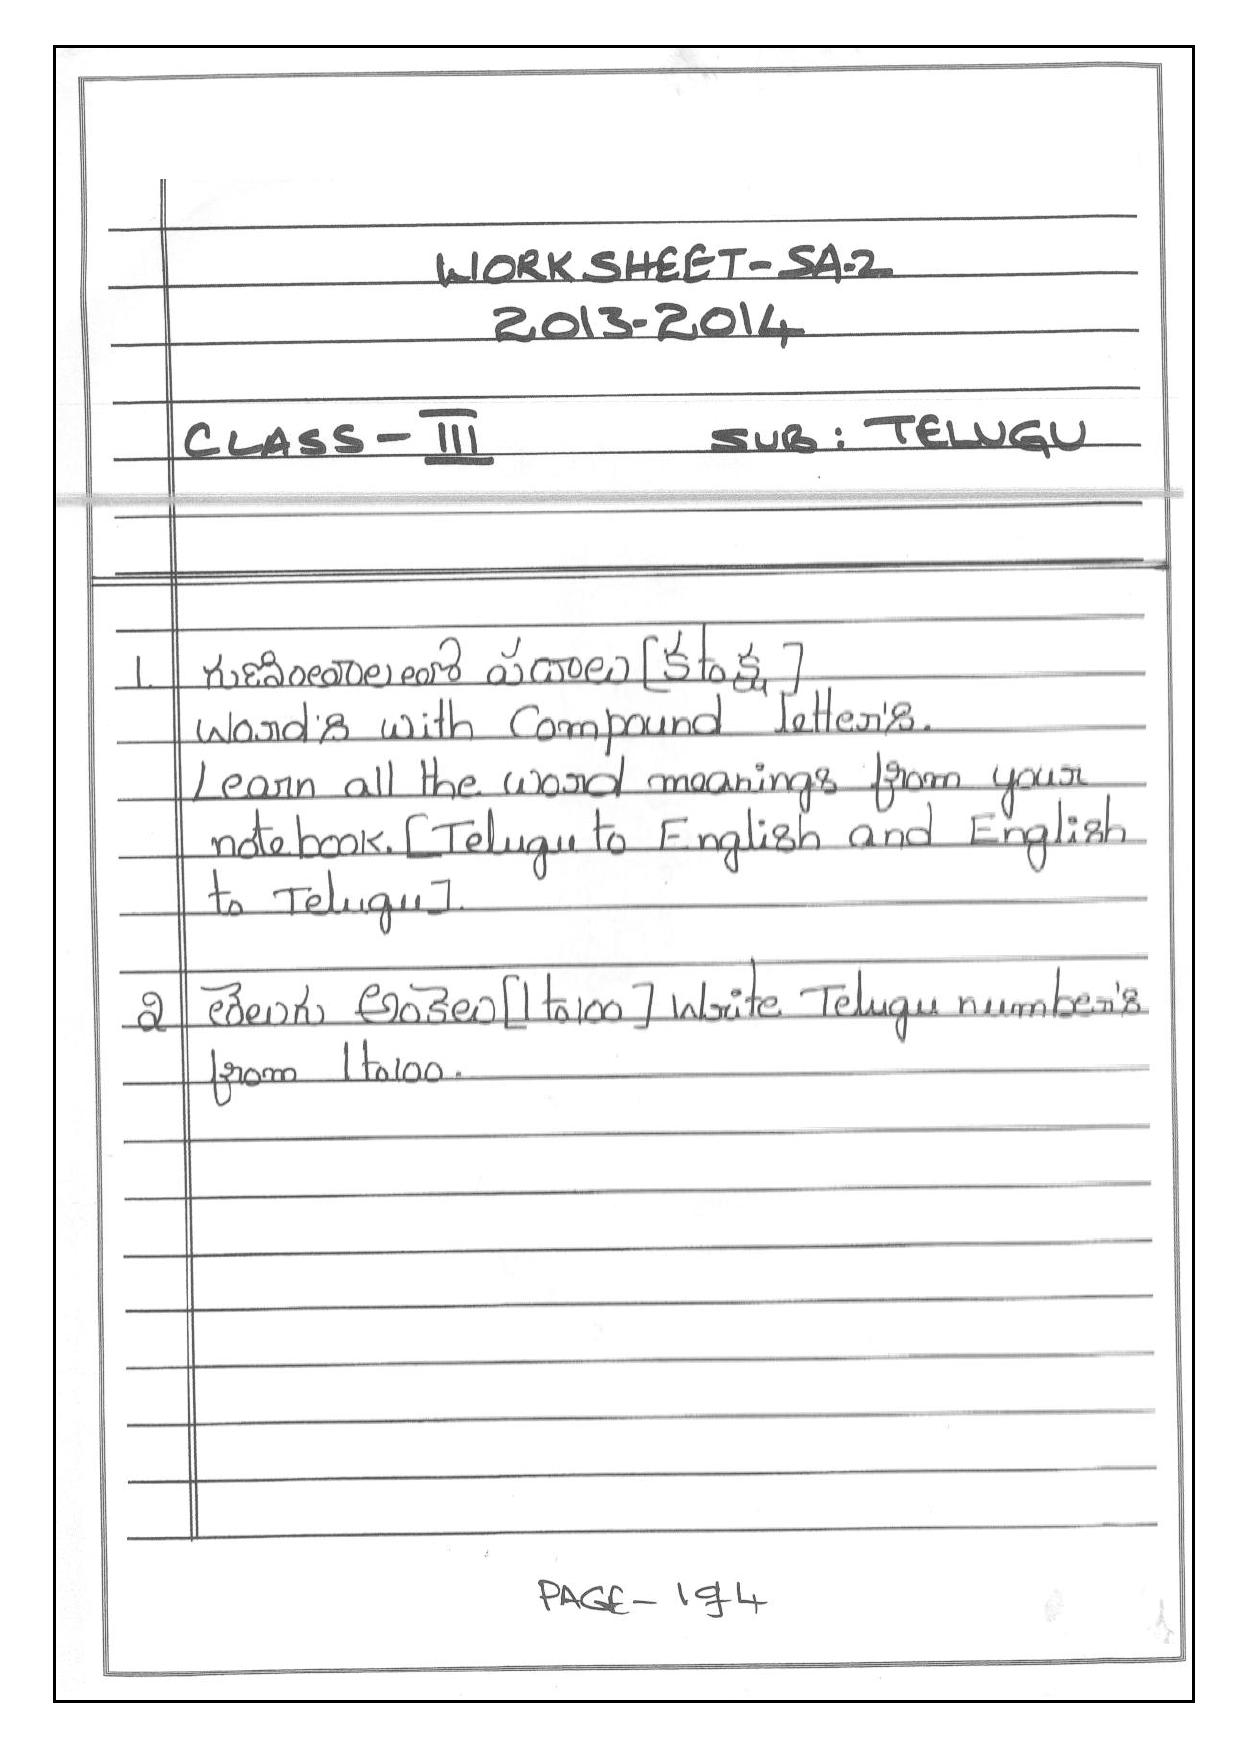 WORK SHEET-SA-2
2013-2014
CLASS-III SUB: TELUGU
1. గుణింతాలు లాంటి పదాలు [క to క్ష]
Word's with Compound letter's.
Learn all the word meanings from your
notebook. [Telugu to English and English
to Telugu].
2 తెలుగు అంకెలు [1 to 100] Write Telugu number's
from 1 to 100.
PAGE-1 of 4